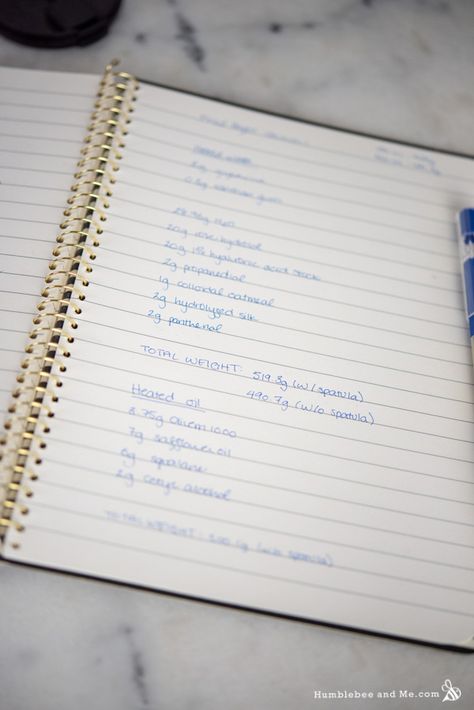 2g
0.5g xanthan gum
H2O
20g rose hydrosol
20g 1% hyaluronic acid stock
2g propanediol
1g colloidal oatmeal
2g hydrolyzed silk
2g panthenol
TOTAL WEIGHT: 519.3g (w/ spatula)
490.7g (w/o spatula)
Heated oil
8.75g Olivem 1000
7g safflower oil
6g squalane
2g cetyl alcohol
TOTAL WEIGHT: (w/o spatula)
Humblebee and Me.com